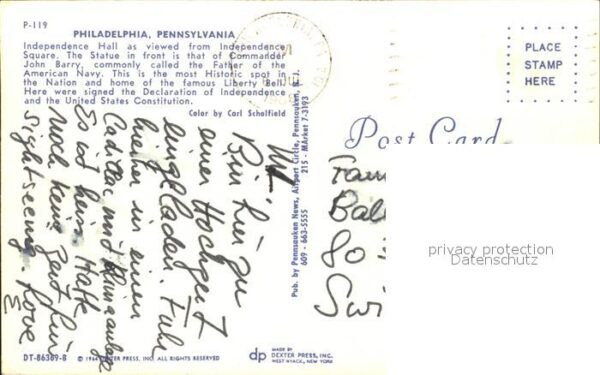 P-119
PHILADELPHIA, PENNSYLVANIA
Independence Hall as viewed from Independence
Square. The Statue in front is that of Commander
John Barry, commonly called the Father of the
American Navy. This is the most Historic spot in
the Nation and home of the famous Liberty Bell.
Here were signed the Declaration of Independence
and the United States Constitution.
Color by Carl Scholfield
Bin hier zu
einer Hochzeit
eingeladen. Fuhr
in einem
Cadillac mit Klimaanlage
Es ist heiss Hatte
noch keine Zeit für
sightseeing. Love
E
Pub. by Pennsauken News, Airport Circle, Pennsauken, N.J.
609 - 663-5555 215 - MArket 7-3193
Post Card
PLACE
STAMP
HERE
Fam
Bal
80
Swi
privacy protection
Datenschutz
DT-86369-B
© 1964 DEXTER PRESS, INC. ALL RIGHTS RESERVED
dp
MADE BY
DEXTER PRESS, INC.
WEST NYACK, NEW YORK